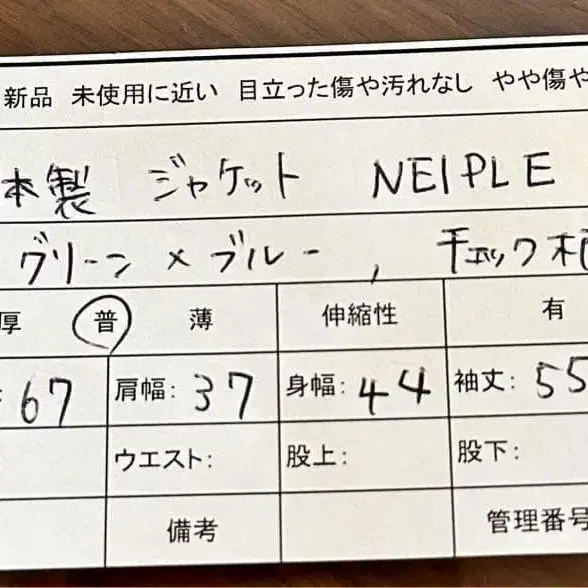 新品 未使用に近い 目立った傷や汚れなし やや傷や
本製 ジャケット NEIPLE
グリーン×ブルー, チェック柄
厚 普 薄 伸縮性 有
: 67 肩幅: 37 身幅: 44 袖丈: 55
ウエスト: 股上: 股下:
備考 管理番号